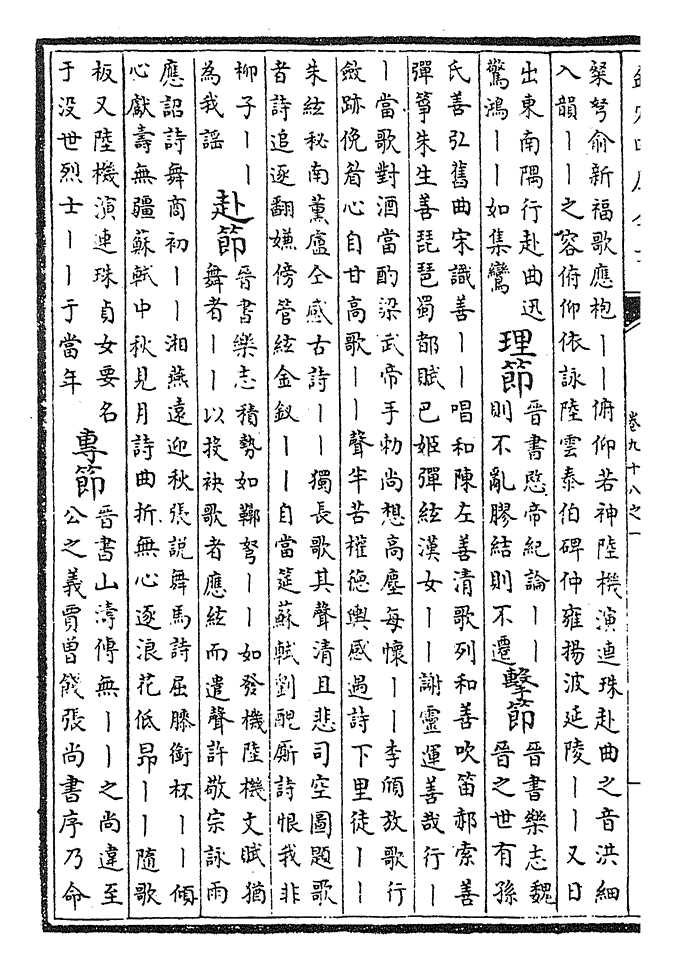 卷九十八之一
桀弩俞新福歌應枹丨丨俯仰若神陸機演連珠赴曲之音洪細
入韻丨丨之容俯仰依詠陸雲泰伯碑仲雍揚波延陵丨丨又日
出東南隅行赴曲迅
驚鴻丨丨如集鸞
理節
晉書愍帝紀論丨丨
則不亂膠結則不遷
擊節
晉書樂志魏
晉之世有孫
氏善弘舊曲宋識善丨丨唱和陳左善清歌列和善吹笛郝索善
彈箏朱生善琵琶蜀都賦巴姬彈絃漢女丨丨謝靈運善哉行丨
丨當歌對酒當酌梁武帝手勅尚想高塵每懷丨丨李頎放歌行
斂跡俛眉心自甘高歌丨丨聲半苦權德輿感遇詩下里徒丨丨
朱絃秘南薰盧仝感古詩丨丨獨長歌其聲清且悲司空圖題歌
者詩追逐翻嫌傍管絃金釵丨丨自當筵蘇軾劉醜廝詩恨我非
柳子丨丨
為我謡
赴節
晉書樂志積勢如鞹弩丨丨如發機陸機文賦猶
舞者丨丨以投袂歌者應絃而遣聲許敬宗詠雨
應詔詩舞商初丨丨湘燕遠迎秋張説舞馬詩屈膝銜杯丨丨傾
心獻壽無疆蘇軾中秋見月詩曲折無心逐浪花低昂丨丨隨歌
板又陸機演連珠貞女要名
于没世烈士丨丨于當年
專節
晉書山濤傳無丨丨之尚違至
公之義賈曾餞張尚書序乃命